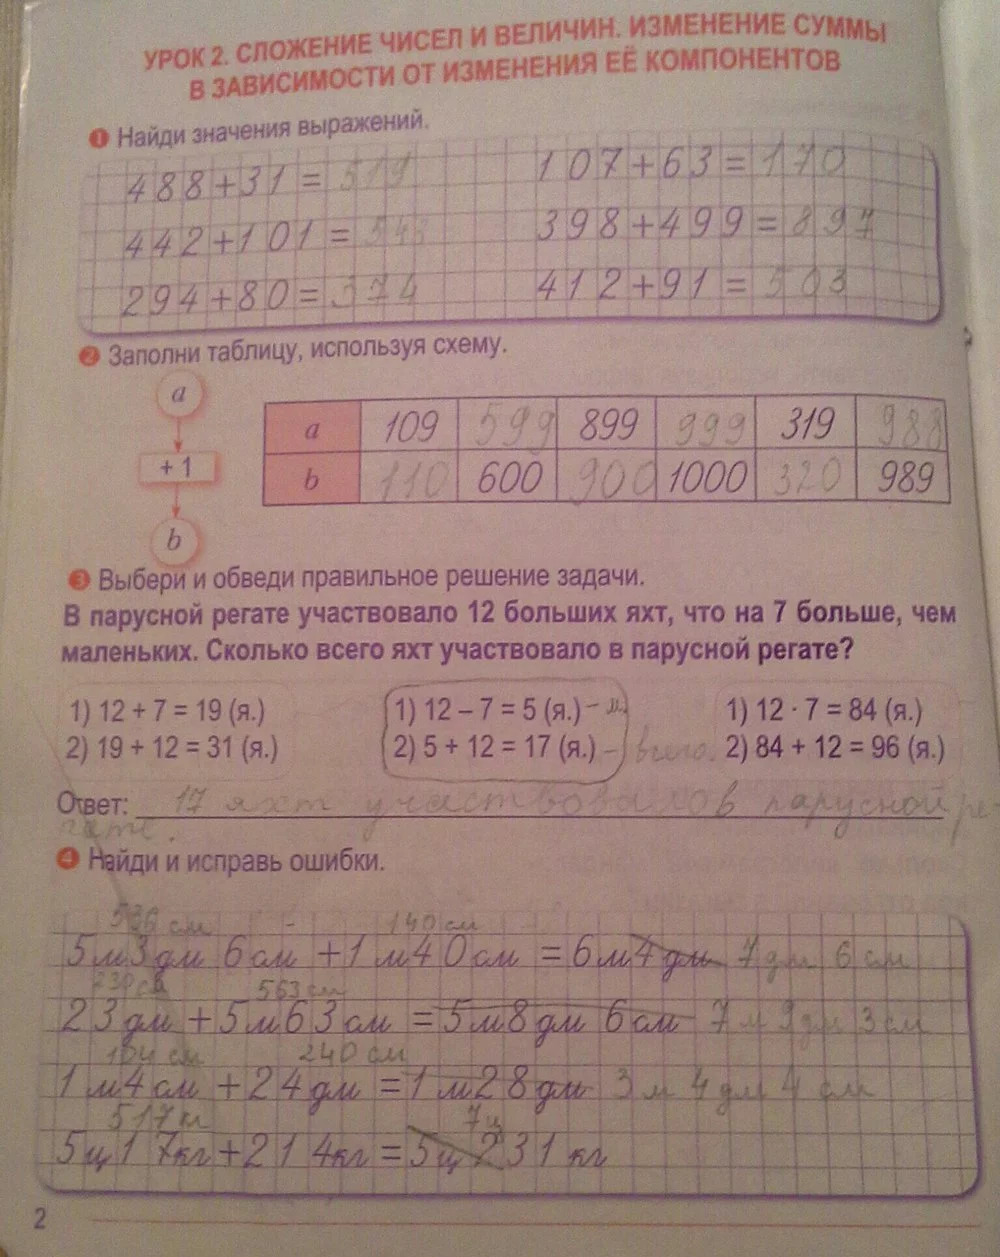 УРОК 2. СЛОЖЕНИЕ ЧИСЕЛ И ВЕЛИЧИН. ИЗМЕНЕНИЕ СУММЫ
В ЗАВИСИМОСТИ ОТ ИЗМЕНЕНИЯ ЕЁ КОМПОНЕНТОВ
1 Найди значения выражений.
488+31=519 107+63=170
442+101=543 398+499=897
294+80=374 412+91=503
2 Заполни таблицу, используя схему.
a
+ 1
b
a 109 599 899 999 319 988
b 110 600 900 1000 320 989
3 Выбери и обведи правильное решение задачи.
В парусной регате участвовало 12 больших яхт, что на 7 больше, чем
маленьких. Сколько всего яхт участвовало в парусной регате?
1) 12 + 7 = 19 (я.) 1) 12 – 7 = 5 (я.) – м. 1) 12 · 7 = 84 (я.)
2) 19 + 12 = 31 (я.) 2) 5 + 12 = 17 (я.) – всего. 2) 84 + 12 = 96 (я.)
Ответ: 17 яхт парусной ре
гате.
4 Найди и исправь ошибки.
536 см 140 см
5м3дм 6см +1м40см =6м4дм 7дм 6см
230см 563см
23дм+5м63см=5м8дм 6см 7м 9дм 3см
104см 240см
1м4см +24дм=1м28дм 3м 4дм 4см
517кг 7ц
5ц17кг+214кг=5ц231кг
2